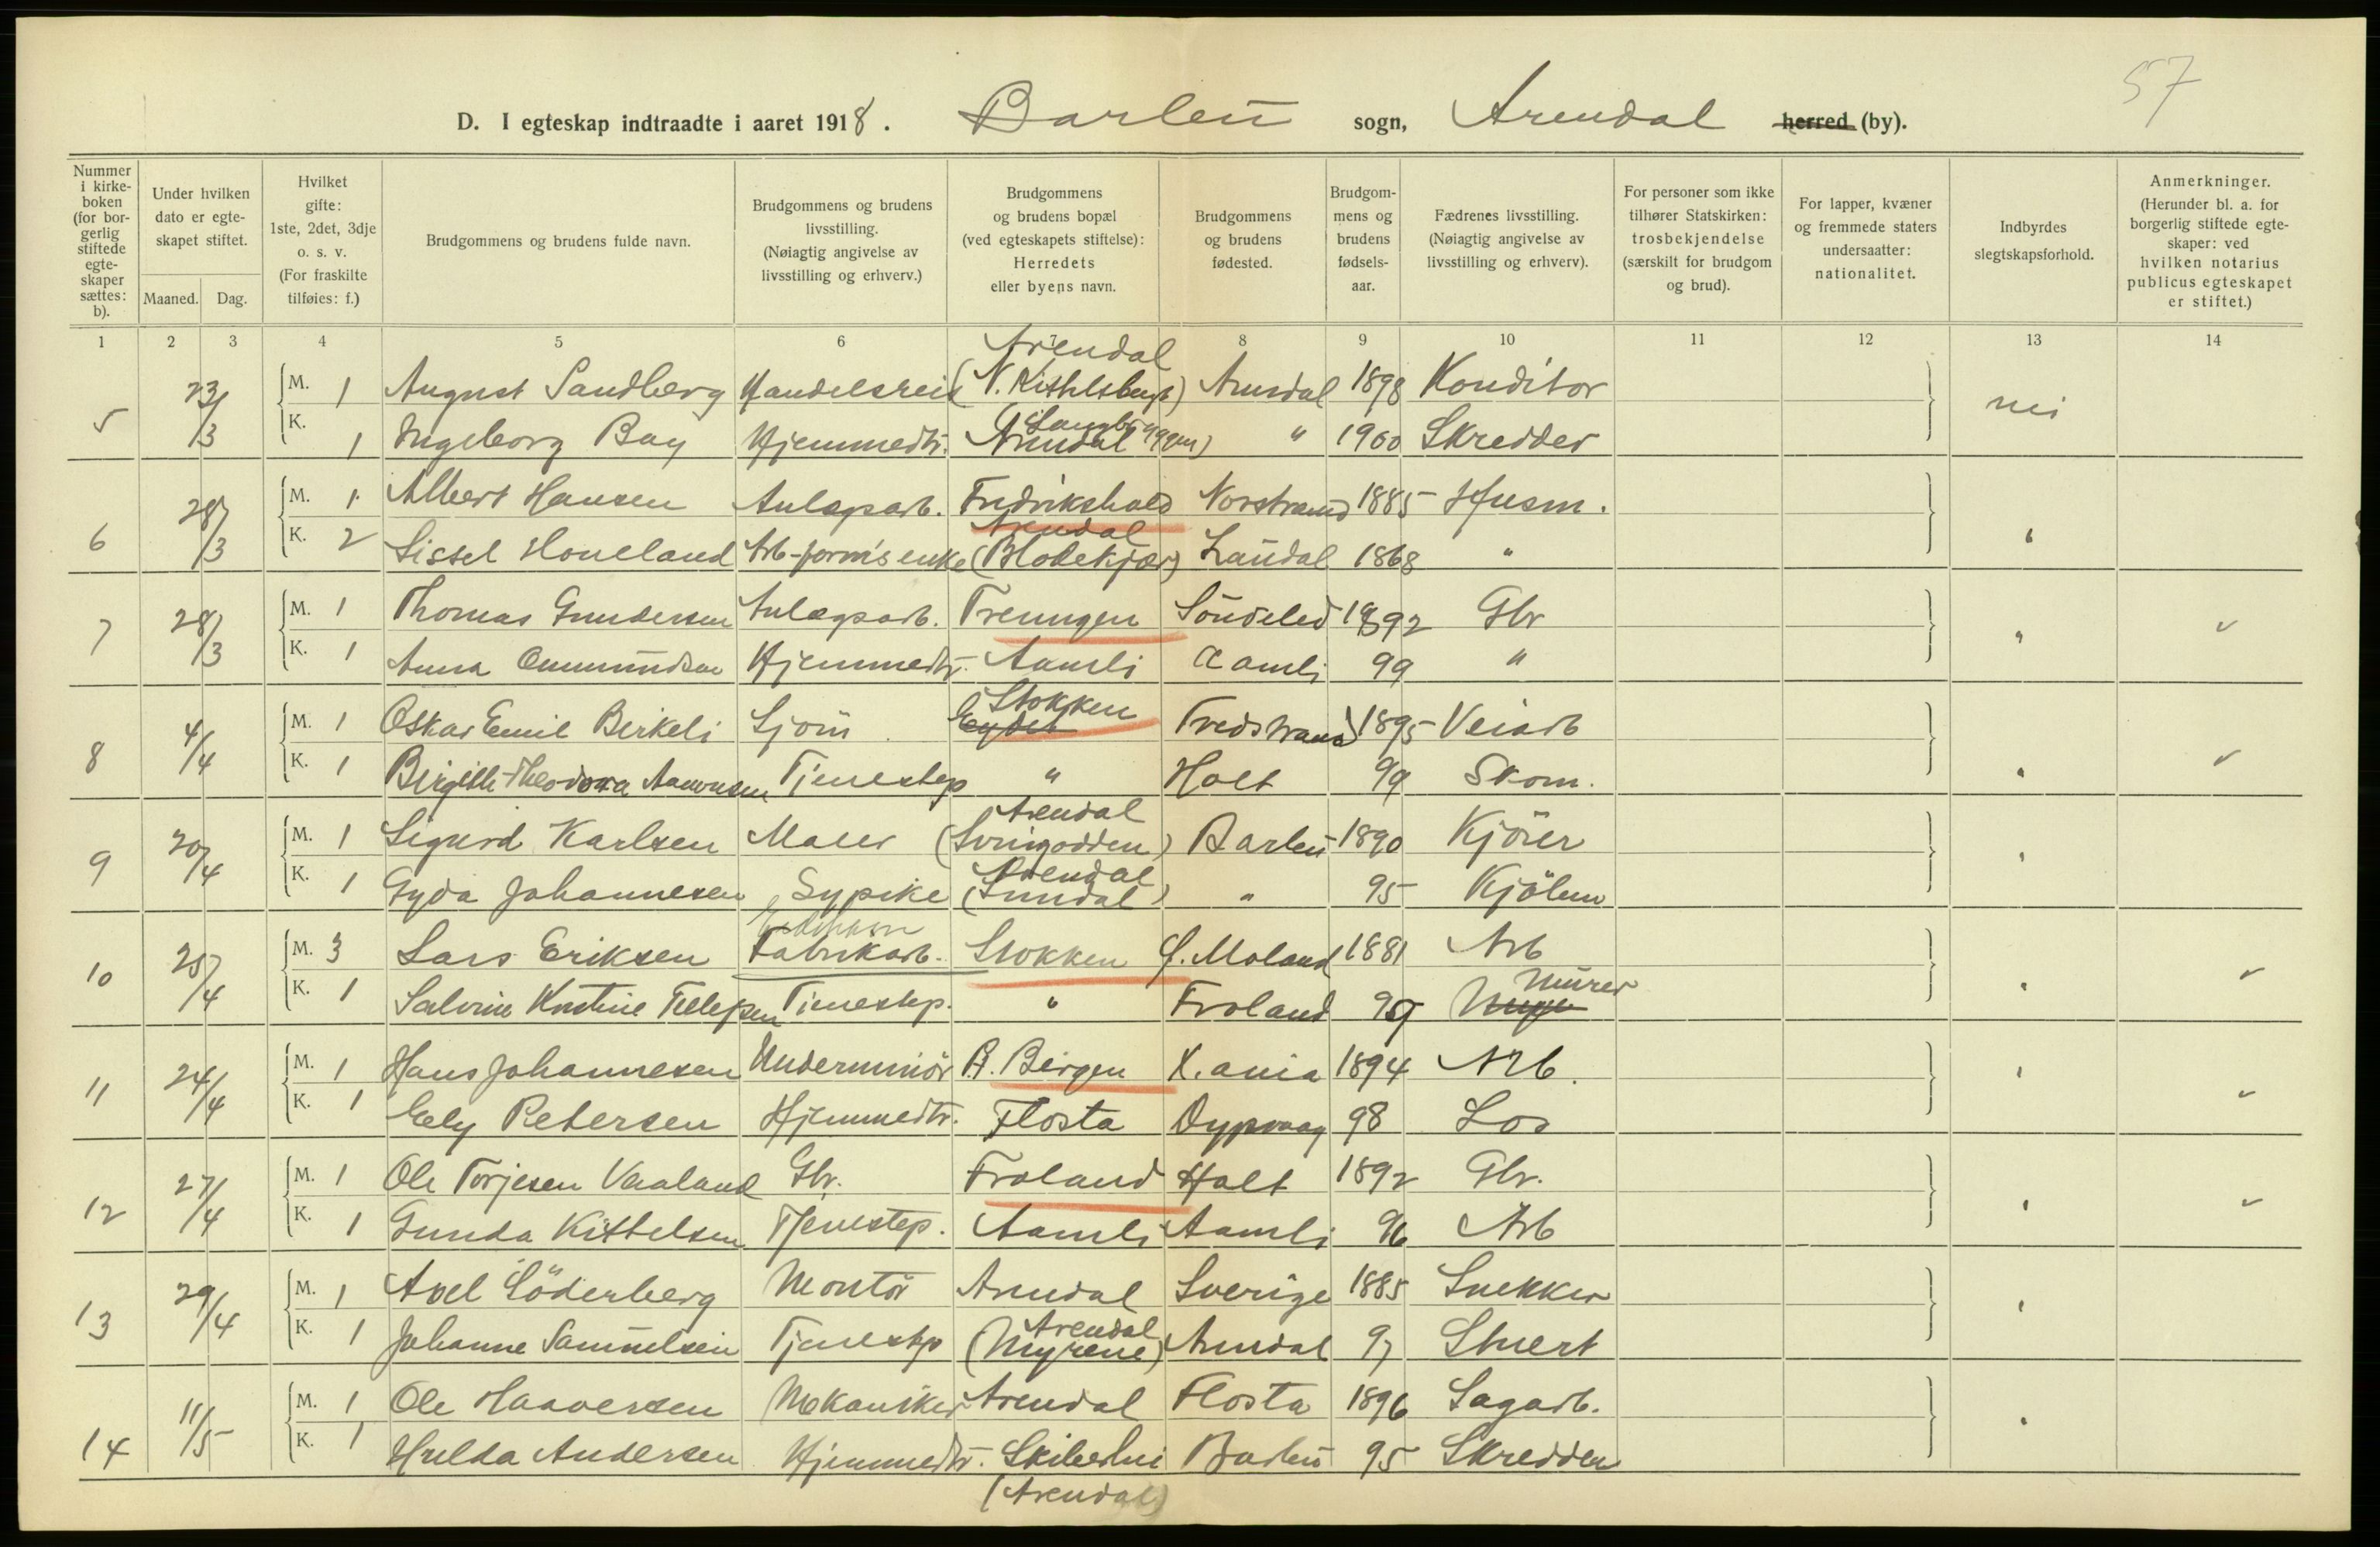 57
D. I egteskap indtraadte i aaret 1918. Barbu sogn, Arendal herred (by).
Nummer i kirkeboken (for borgerlig stiftede egteskaper sættes: b).
Under hvilken dato er egteskapet stiftet.
Maaned. Dag.
Hvilket gifte: 1ste, 2det, 3dje o. s. v. (For fraskilte tilføies: f.)
Brudgommens og brudens fulde navn.
Brudgommens og brudens livsstilling. (Nøiagtig angivelse av livsstilling og erhverv.)
Brudgommens og brudens bopæl (ved egteskapets stiftelse): Herredets eller byens navn.
Brudgommens og brudens fødested.
Brudgommens og brudens fødselsaar.
Fædrenes livsstilling. (Nøiagtig angivelse av livsstilling og erhverv).
For personer som ikke tilhører Statskirken: trosbekjendelse (særskilt for brudgom og brud).
For lapper, kvæner og fremmede staters undersaatter: nationalitet.
Indbyrdes slegtskapsforhold.
Anmerkninger. (Herunder bl. a. for borgerlig stiftede egteskaper: ved hvilken notarius publicus egteskapet er stiftet.)
1 2 3 4 5 6 7 8 9 10 11 12 13 14
Arendal
5 23/3 M. 1 August Sandberg Handelsreis Arendal 1898 Konditor nei
K. 1 Ingeborg Bay Hjemmedtr. Arendal " 1900 Skredder
6 28/3 M. 1 Albert Hansen Anlægsarb. Fredrikshald Norstrand 1885 Husm. "
Arendal
K. 2 Sissel Honeland Arb-form's enke (Blodekjær) Laudal 1868 "
7 28/3 M. 1 Thomas Gundersen Anlægsarb. Treungen Söndeled 1892 Gbr "
K. 1 Anna Ommundsen Hjemmedtr. Aamli Aamli 99 "
Stokken
8 4/4 M. 1 Oskar Emil Birkeli Sjöm Eydeh Tvedstrand 1895 Veiarb "
K. 1 Birgithe Theodora Aamonsen Tjenestep " Holt 99 Skom.
Arendal
9 20/4 M. 1 Sigurd Karlsen Maler (Svingodden) Barbu 1890 Kjörer "
Arendal
K. 1 Gyda Johannesen Sypike (Sundal) " 95 Kjölem
10 25/4 M. 3 Lars Eriksen Fabrikarb. Stokken Ö. Moland 1881 Arb "
Murer
K. 1 Salvine Kristine Tellefsen Tjenestep. " Froland 99
11 24/4 M. 1 Hans Johannesen Underminör B. Bergen K.ania 1894 Arb. "
K. 1 Elly Petersen Hjemmedtr. Flosta Dypvaag 98 Los
12 27/4 M. 1 Ole Torjesen Vaaland Gbr. Froland Holt 1892 Gbr. "
K. 1 Gunda Kittelsen Tjenestep. Aamli Aamli 96 Arb
13 29/4 M. 1 Axel Söderberg Montör Arendal Sverige 1885 Snekker "
Arendal
K. 1 Johanne Samuelsen Tjenestep (Myrene) Arendal 97 Stuert
14 11/5 M. 1 Ole Haaversen Mekaniker Arendal Flosta 1896 Sagarb. "
K. 1 Hulda Andersen Hjemmedtr. Barbu 95 Skredder
(Arendal)